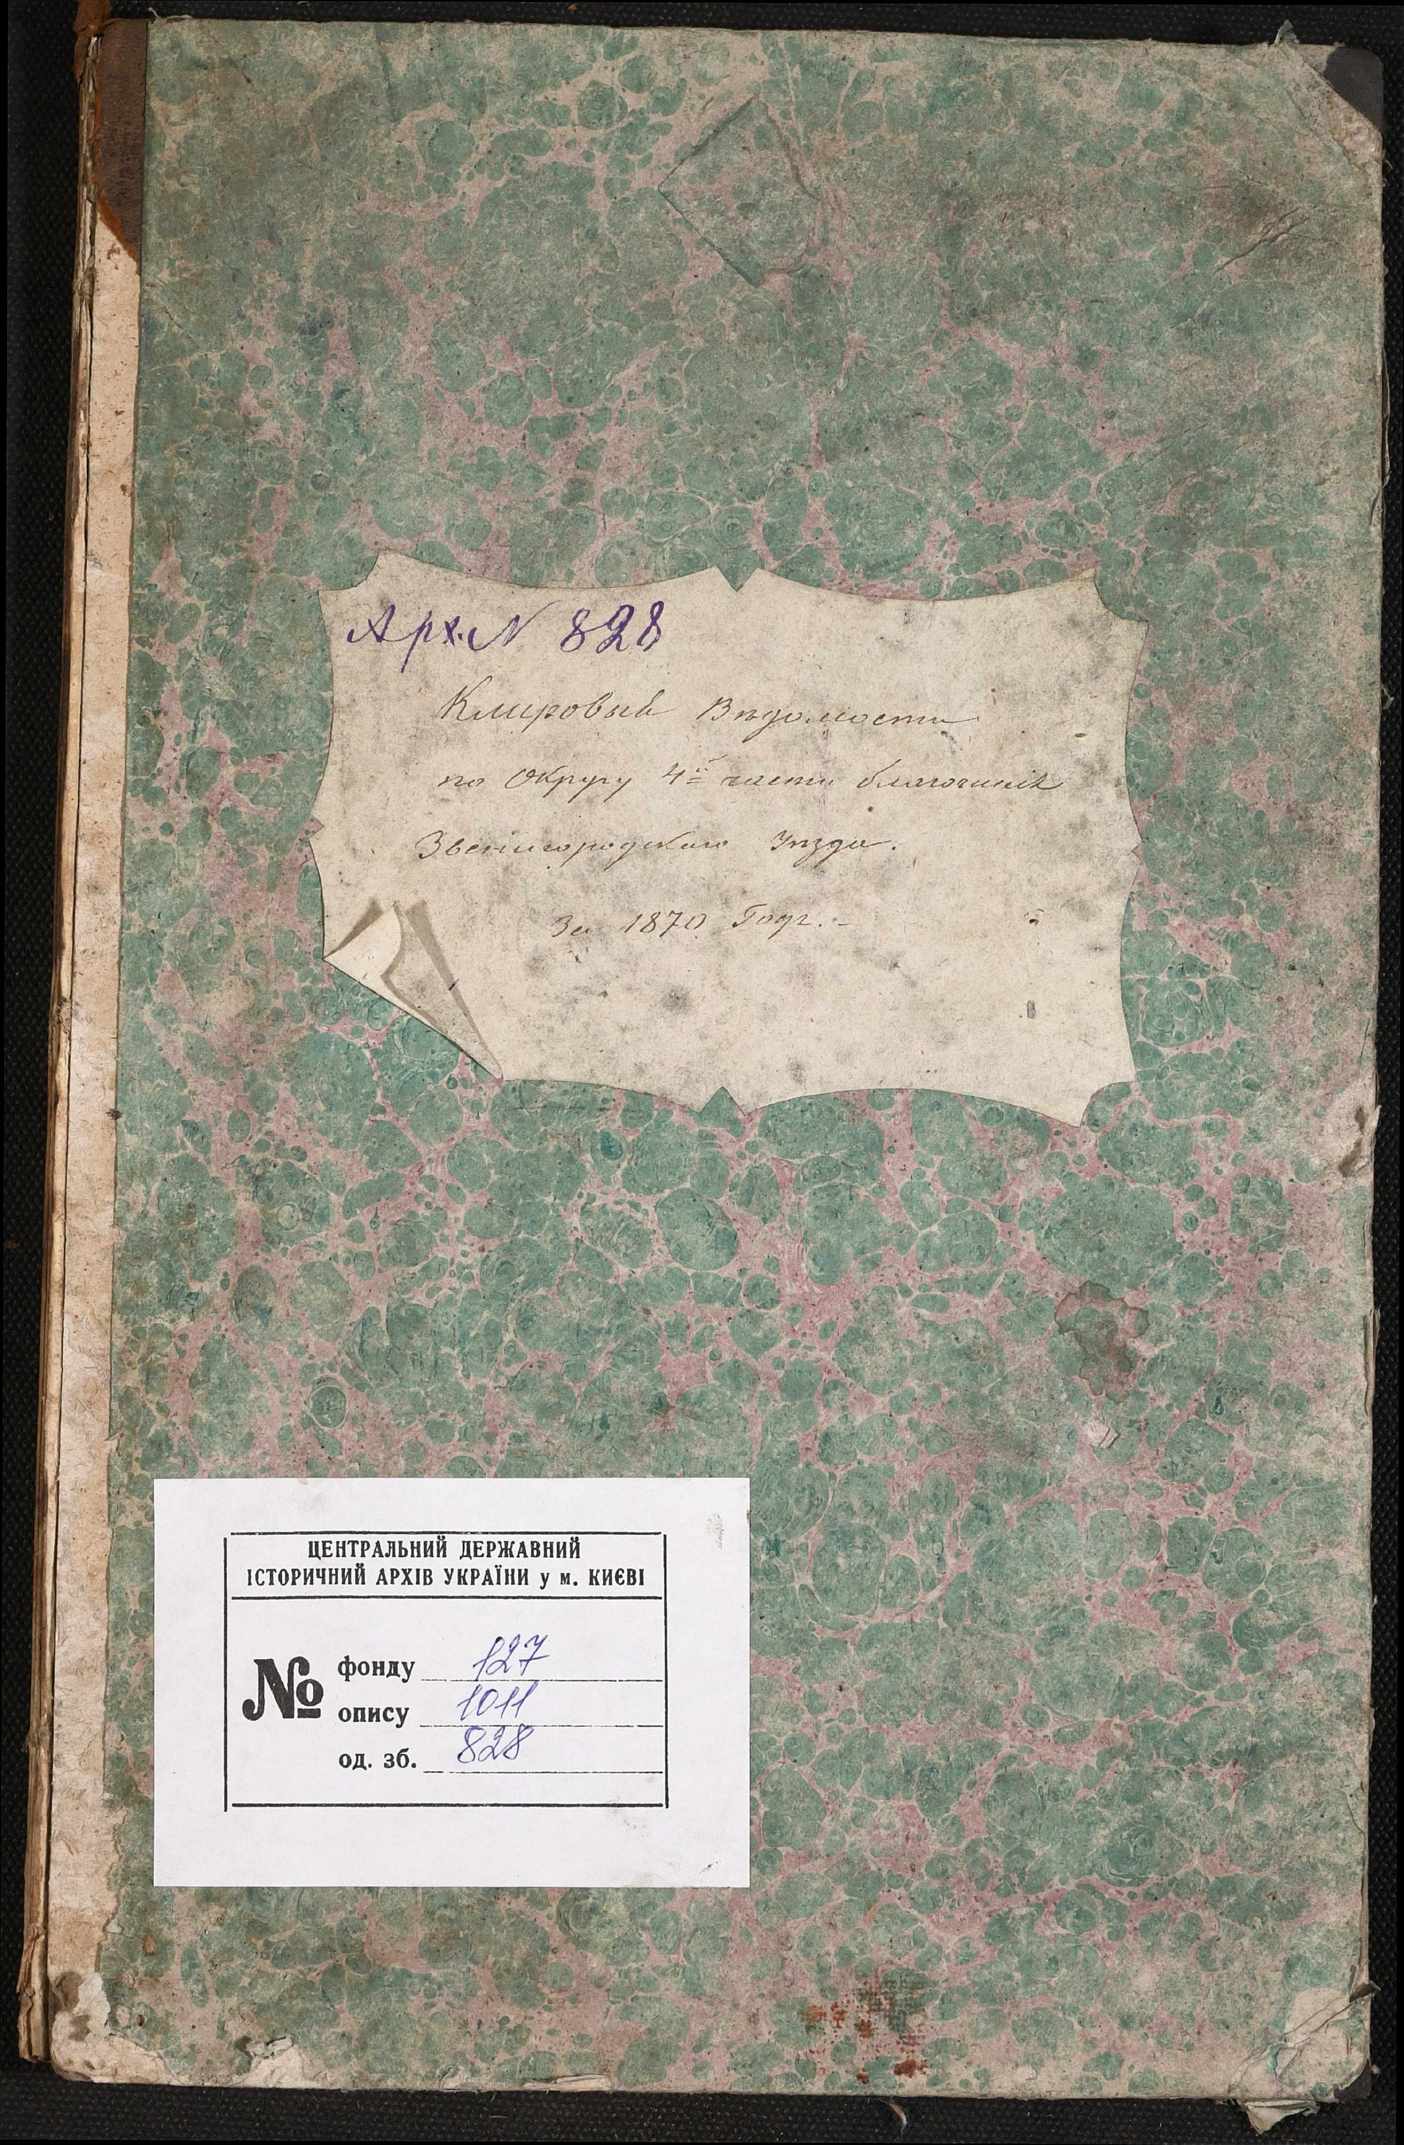 Арх. № 828
Клировыя Вѣдомости
по Округу 4й части благочинія
Звенигородскаго Уѣзда.
За 1870 Годъ. -
ЦЕНТРАЛЬНИЙ ДЕРЖАВНИЙ
ІСТОРИЧНИЙ АРХІВ УКРАЇНИ у м. КИЄВІ
№
фонду 127
опису 1011
од. зб. 828